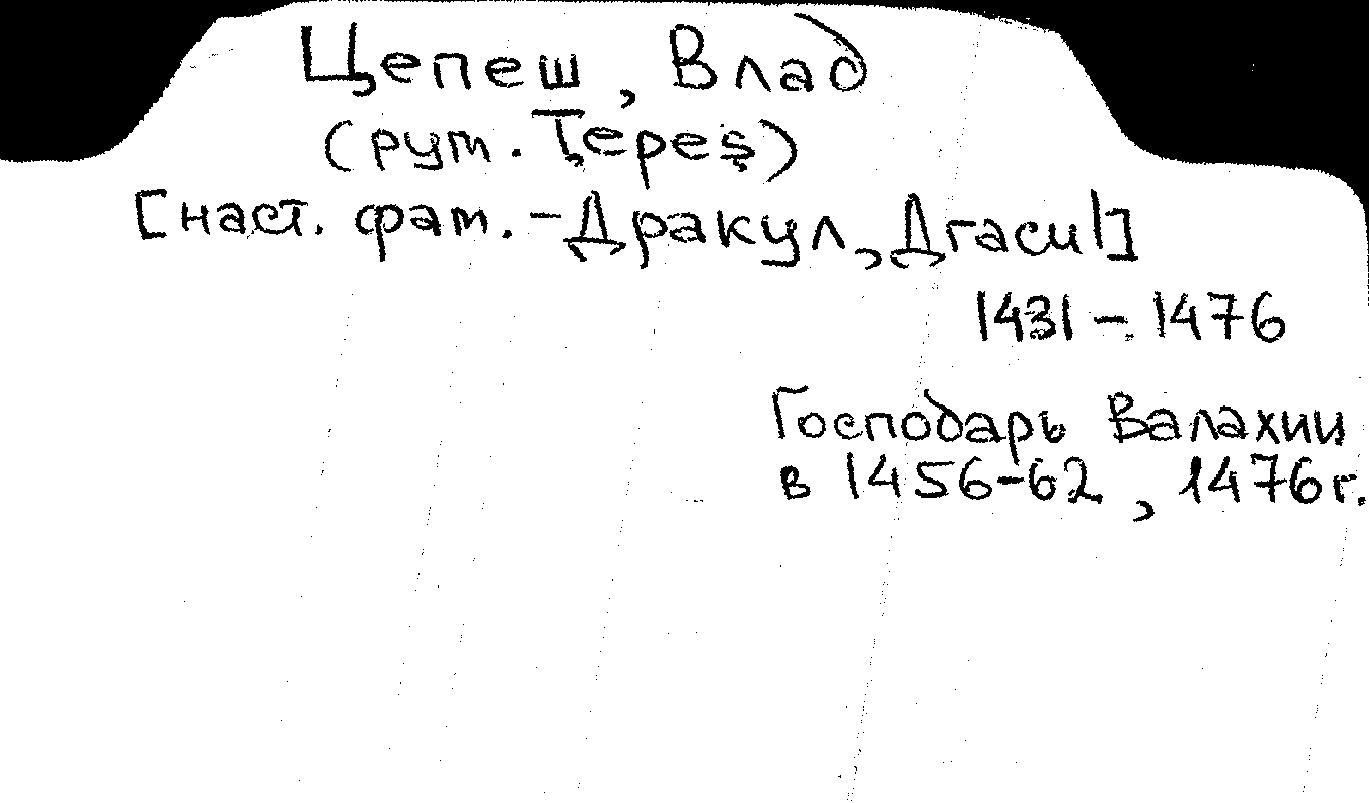 Цепеш, Влад
(рум. Ţepeş)
[наст. фам. - Дракул, Дгасиl]
1431 - 1476
Господарь Валахии
в 1456-62, 1476 г.